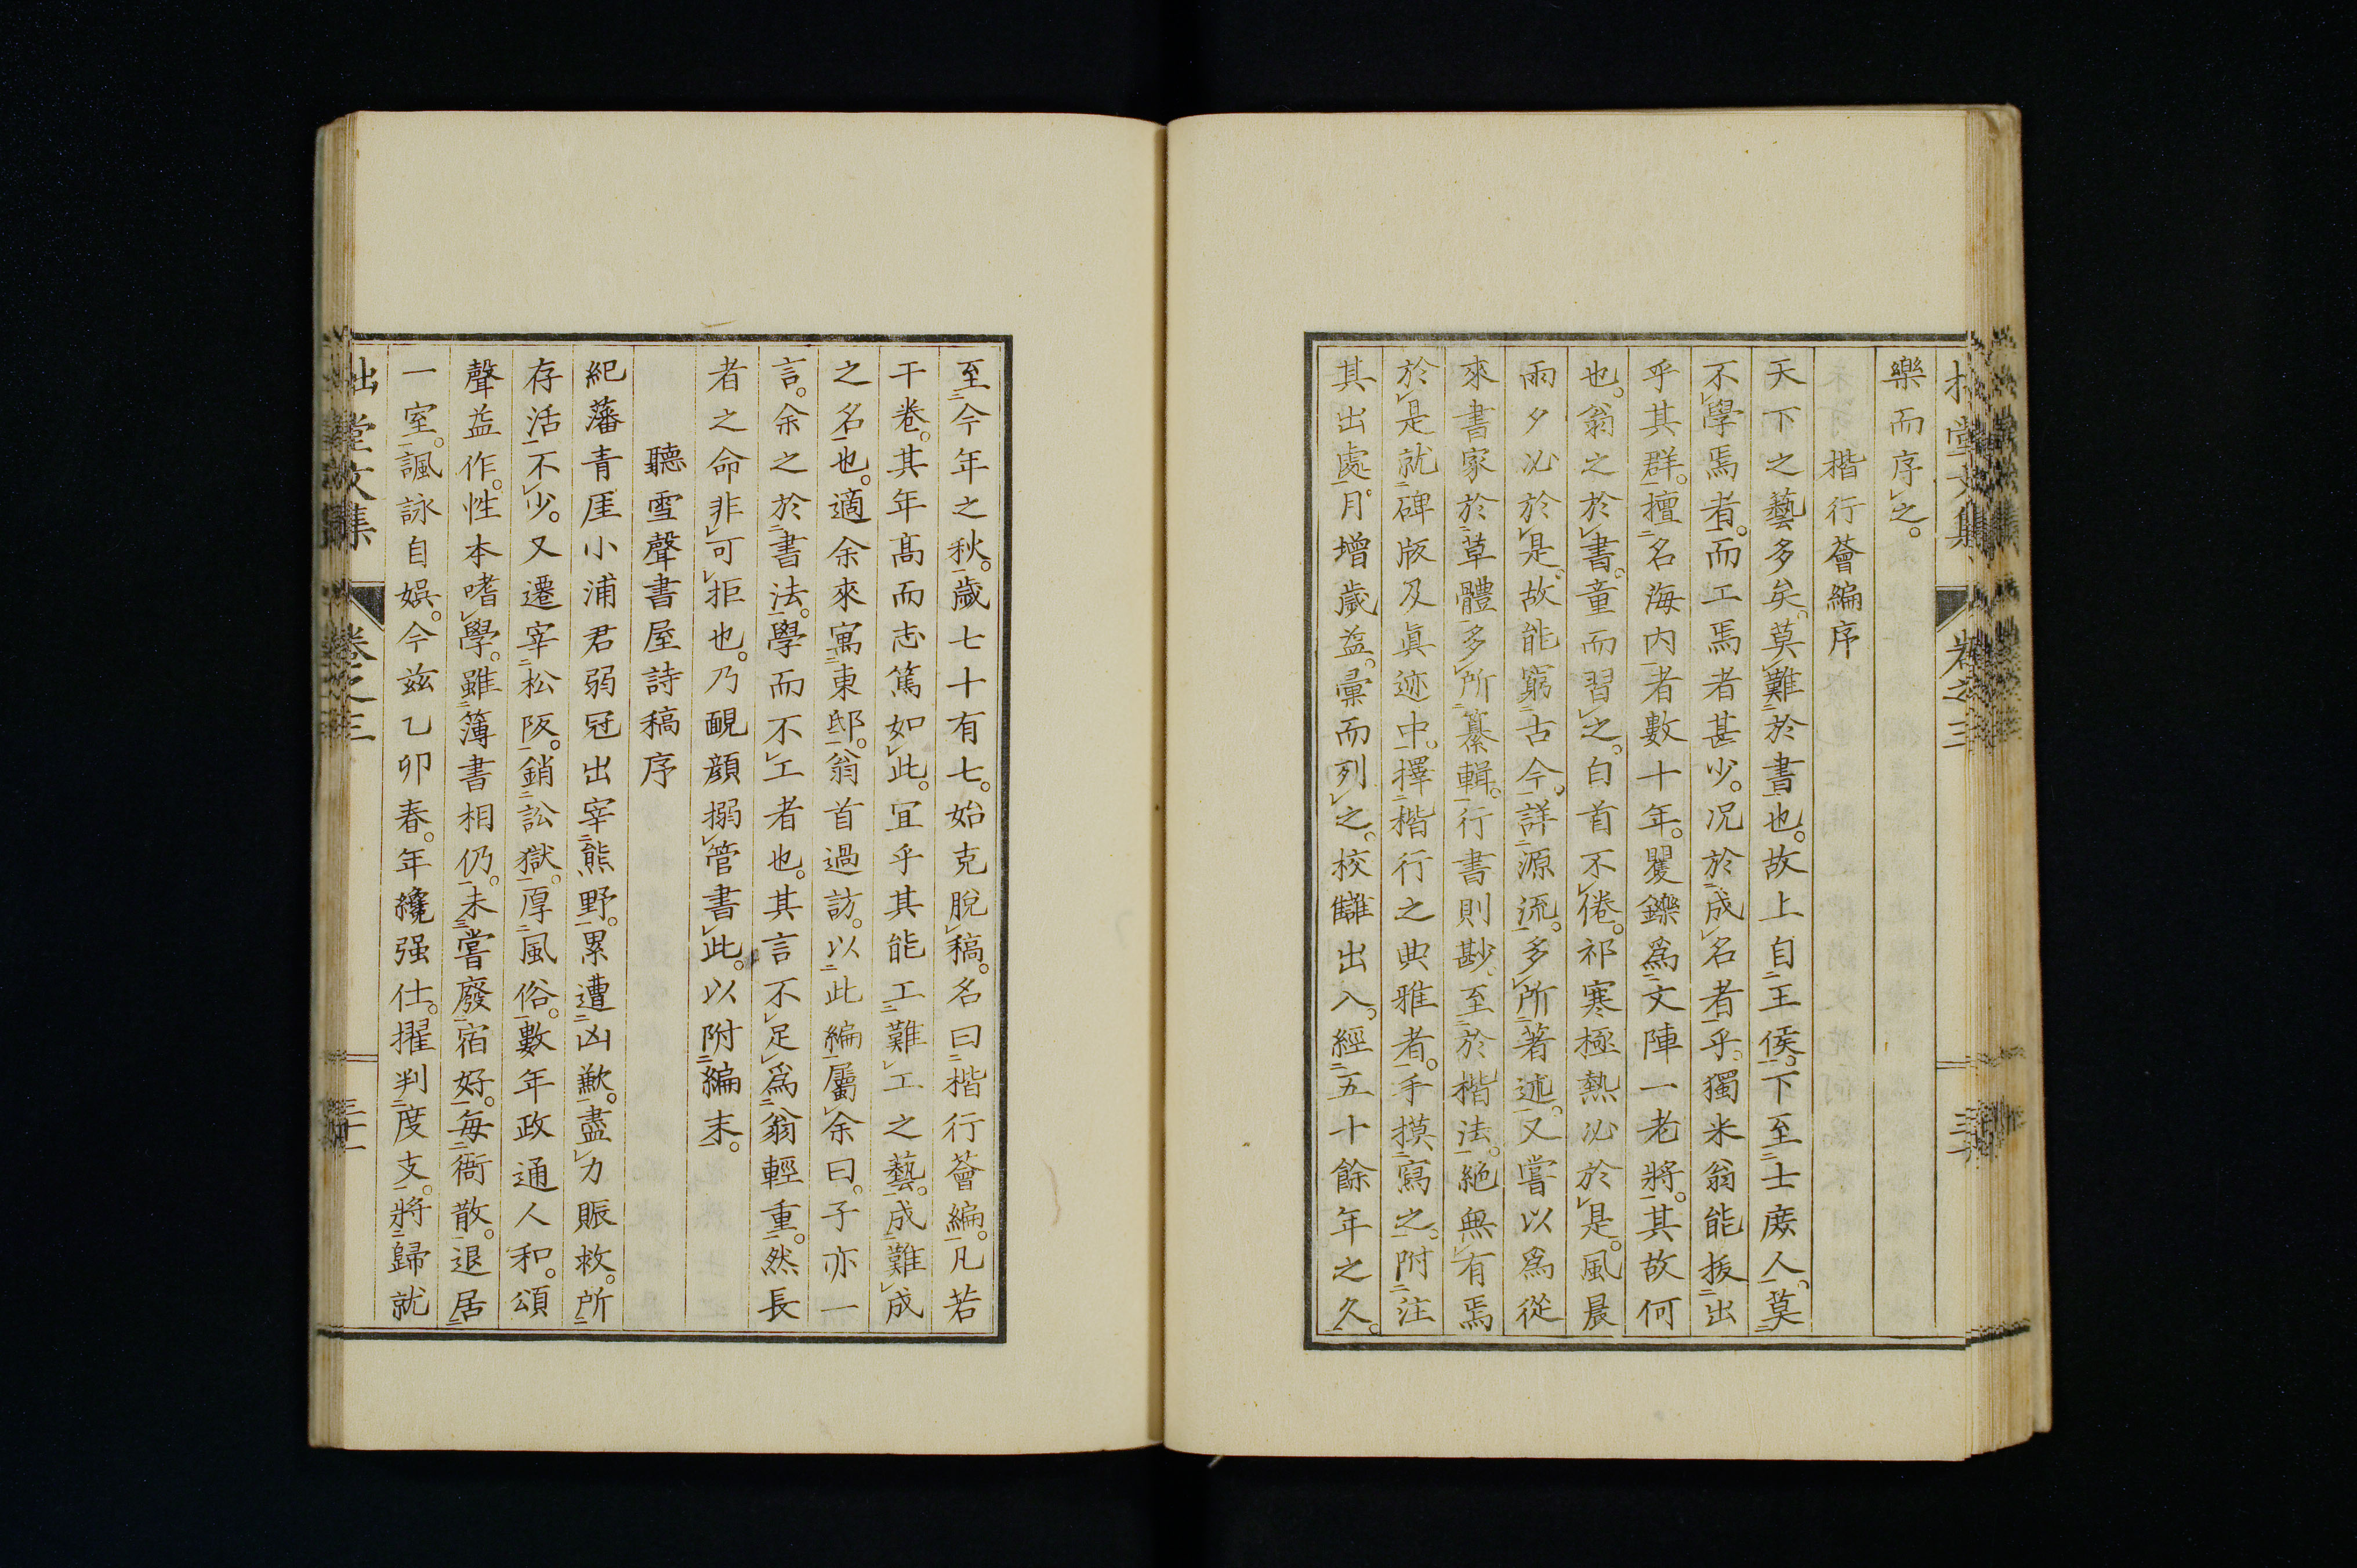 樂而序之。
楷行薈編序
天下之藝多矣。莫難於書也。故上自王侯。下至士庶人。莫
不學焉者。而工焉者甚少。况於成名者乎。獨米翁能拔出
乎其群。擅名海内者數十年。矍鑠爲文陣一老將。其故何
也。翁之於書。童而習之。白首不倦。祁寒極熱必於是。風晨
雨夕必於是。故能窮古今。詳源流。多所著述。又嘗以爲從
來書家於草體多所纂輯。行書則尠。至於楷法。絕無有焉
於是就碑版及眞迹中。擇楷行之典雅者。手摸寫之。附注
其出處。月增歲益。彙而列之。校讎出入。經五十餘年之久。
至今年之秋。歲七十有七。始克脫稿。名曰楷行薈編。凡若
干卷。其年高而志篤如此。宜乎其能工難工之藝。成難成
之名也。適余來寓東邸。翁首過訪。以此編屬余曰。子亦一
言。余之於書法。學而不工者也。其言不足爲翁輕重。然長
者之命非可拒也。乃靦顔搦管書此。以附編末。
聽雪聲書屋詩稿序
紀藩青厓小浦君弱冠出宰熊野。累遭凶歉。盡力賑救。所
存活不少。又遷宰松阪。銷訟獄。厚風俗。數年政通人和。頌
聲益作。性本嗜學。雖簿書相仍。未嘗廢宿好。每衙散。退居
一室。諷詠自娛。今茲乙卯春。年纔强仕。擢判度支。將歸就
堂文集
卷之三
三十一